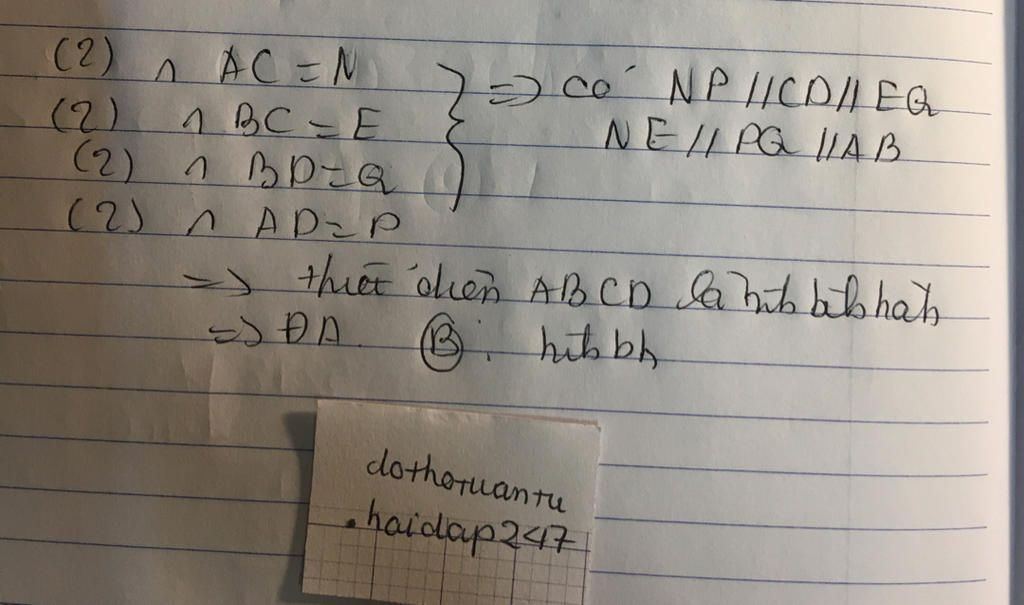 (2) ∩ AC = N
(2) ∩ BC = E
(2) ∩ BD = Q
(2) ∩ AD = P
} => có NP // CD // EQ
NE // PQ // AB
=> thiết diện ABCD là hình bình hành
=> ĐA. (B): hình bh
dothotuantu
.haidap247